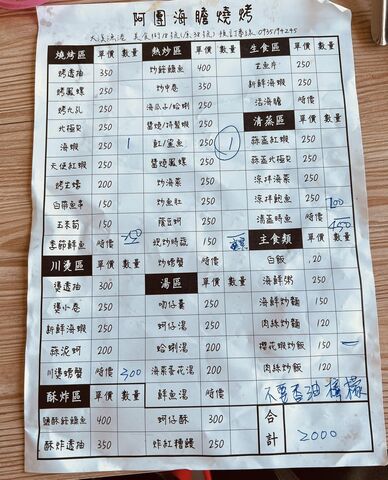 阿團海膽燒烤
燒烤區 單價 數量 熱炒區 單價 數量 生食區 單價 數量
烤透抽 350 炒 400 生魚片 250
烤鳳螺 250 炒 250 新鮮海蝦 250
烤 250 海瓜子/蛤蜊 250 活海膽 時價
北極貝 250 醬燒/ 250 清蒸區 單價 數量
海蝦 250 1 魟/鯊魚 250 1 蒜蓉紅蝦 250
天使紅蝦 250 醬燒鳳螺 250 蒜蓉北極貝 250
烤生蠔 200 炒海菜 250 涼拌海菜 250
白帶魚串 150 炒魚肚 250 涼拌鮑魚 250 700
玉米筍 150 蔭豉蚵 250 清蒸時魚 時價 450
季節鮮魚 時價 現炒時蔬 150 主食類 單價 數量
川燙區 單價 數量 炒螃蟹 時價 白飯 20
燙透抽 300 湯區 單價 數量 海鮮粥 250
燙小卷 250 吻仔羹 250 海鮮炒麵 150
新鮮海蝦 250 蚵仔湯 200 肉絲炒麵 120
蒜泥蚵 200 蛤蜊湯 200 櫻花蝦炒飯 150 一
川燙螃蟹 時價 300 海菜蛋花湯 200 肉絲炒飯 120
酥炸區 單價 數量 鮮魚湯 時價 不要香油 檸檬
鹽酥 400 蚵仔酥 300 合
酥炸透抽 350 炸紅糟鰻 250 計 2000